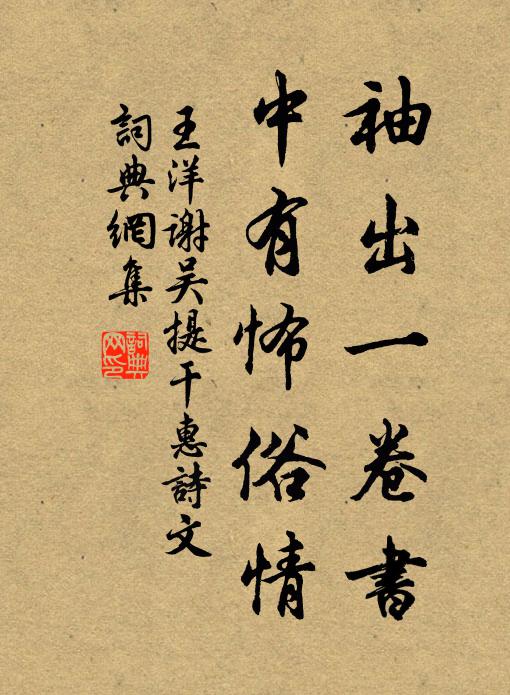 袖出一卷書
中有怖俗情
王洋謝吴提干惠詩文
詞典網集
詞典網印